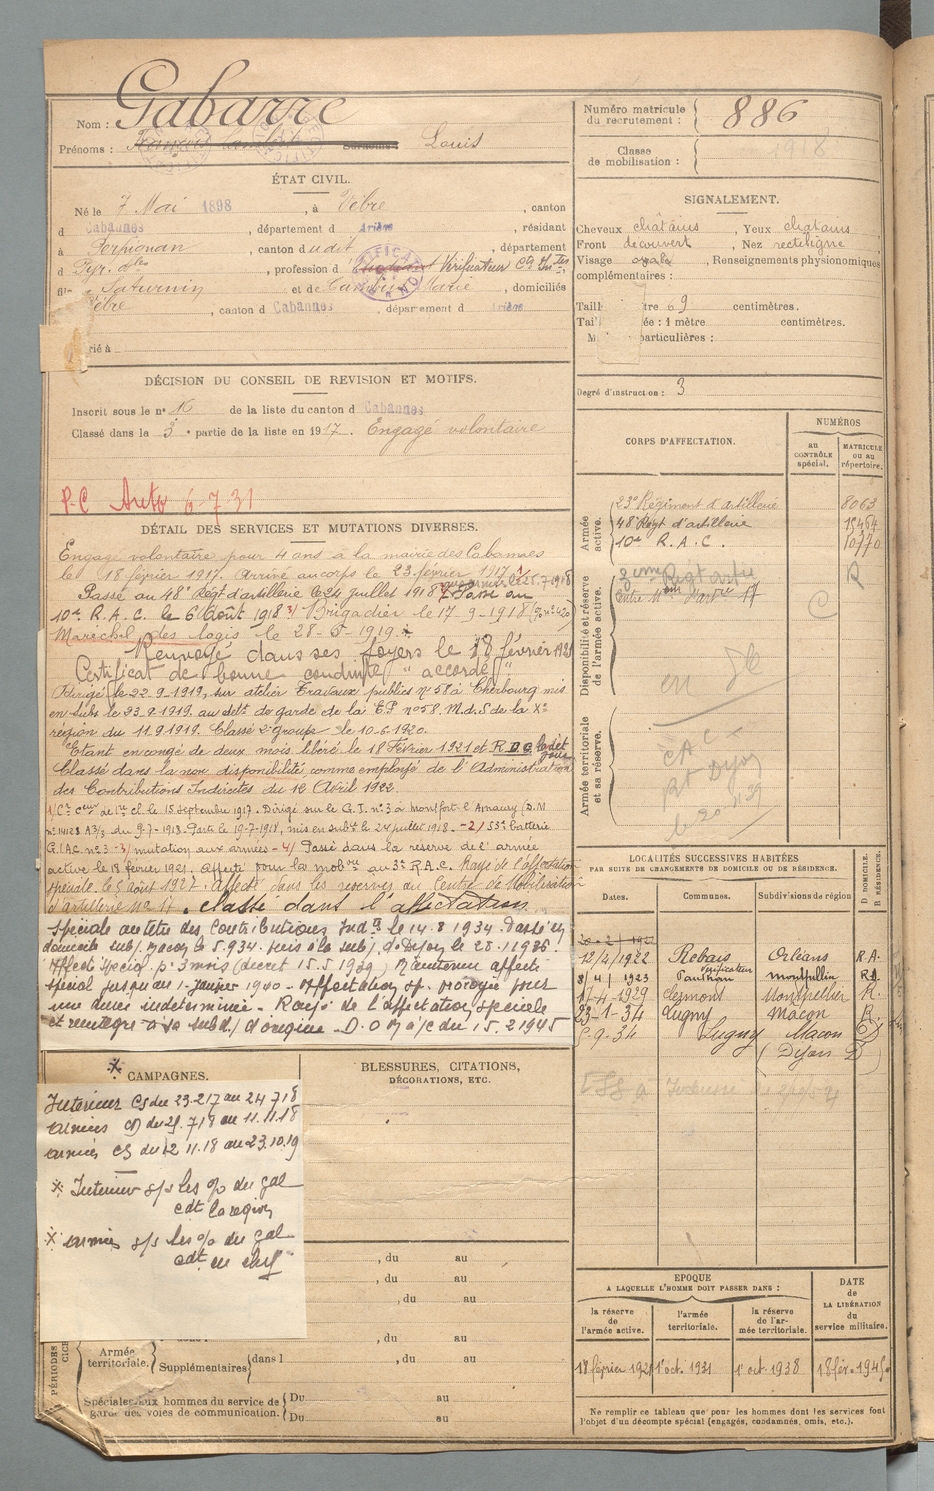 Nom : Gabarre
Prénoms : Louis
Surnoms :
Numéro matricule du recrutement : 886
Classe de mobilisation : 1918
ÉTAT CIVIL.
Né le 7 Mai 1898, à Vèbre, canton
d Cabannes, département d Ariège, résidant
à Perpignan, canton dudit, département
d Pyr. Oles, profession d Vérificateur Cons Ind.tes
fils Saturnin et de Marie, domiciliés
Vèbre, canton d Cabannes, département d Ariège
rié à
SIGNALEMENT.
Cheveux châtains, Yeux châtains
Front découvert, Nez rectiligne
Visage ovale, Renseignements physionomiques
complémentaires :
Taill tre 69 centimètres.
Tai ée : 1 mètre centimètres.
M particulières :
Degré d'instruction : 3
DÉCISION DU CONSEIL DE REVISION ET MOTIFS.
Inscrit sous le n° 16 de la liste du canton d Cabannes
Classé dans le 3e partie de la liste en 1917. Engagé volontaire
P.C Auto 6-7-31
CORPS D'AFFECTATION.
NUMÉROS
au CONTRÔLE spécial.
MATRICULE ou au répertoire.
Armée active.
23e Régiment d'artillerie 8063
48e Régt d'artillerie 15464
10e R.A.C. 10770
Disponibilité et réserve de l'armée active.
3ème Regt artie R
Centre Mon d'artie 17 C
Armée territoriale et sa réserve.
CAC
Dijon
le 20-11-39
DÉTAIL DES SERVICES ET MUTATIONS DIVERSES.
Engagé volontaire pour 4 ans à la mairie des Cabannes
le 18 février 1917. Arrivé au corps le 23 février 1917. 1/
Passé au 48e Régt d'artillerie le 24 juillet 1918 2/ Passé au
10e R.A.C. le 6 Août 1918 3/ Brigadier le 17-9-1918
Maréchal des logis le 28-5-1919.
Renvoyé dans ses foyers le 18 février 1921
Certificat de bonne conduite "accordé"
Dirigé le 22.9.1919, sur atelier Travaux publics n° 58 à Cherbourg mis
en subs. le 23.9.1919. au Sedt de garde de la C.P n° 58. M.d.S de la Xe
région du 11.9.1919. Classé 2e groupe le 10.6.1920.
Etant en congé de deux mois libéré le 18 Février 1921 et R.D.C. ledit jour
Classé dans la non disponibilité comme employé de l'Administration
des Contributions Indirectes du 12 Avril 1922.
1/ Ct ceur de 1re cl. le 15 septembre 1917. Dirigé sur le G.I. n° 3 à Montfort-l'Amaury (D.M
n° 14128 A3/3 du 9-7-1918. Parti le 19-7-1918, mis en subce le 24 juillet 1918. - 2/ 53e batterie
G.I.A.C. n° 3 - 3/ mutation aux armées - 4/ Passé dans la réserve de l'armée
active le 18 février 1921. Affecté pour la mobon au 3e R.A.C. Rayé de l'affectation
spéciale le 5 août 1927. Affecté dans les réserves au Centre de Mobilisation
d'artillerie n° 17. classé dans l'affectation
spéciale au titre des Contributions Indtes le 14.8 1934. Passé en
domicile sub/ Macon le 5.9.34. puis à la sub/ de Dijon le 28.1 1936!
Affecté spécial pr 3 mois (décret 15.5 1939) Maintenu affecté
spécial jusqu'au 1er janvier 1940 - Affectation sp. prorogée pour
une durée indéterminée - Rayé de l'affectation spéciale
et réintégré à sa subd/ d'origine - D.O M a/c du 15.2 1945
LOCALITÉS SUCCESSIVES HABITÉES
PAR SUITE DE CHANGEMENTS DE DOMICILE OU DE RÉSIDENCE.
Dates. Communes. Subdivisions de région D. DOMICILE. R. RÉSIDENCE.
12/4/1922 Rebais Orléans R.A.
8/4/1923 Paulhan Montpellier R.A.
1-4-1929 Clermont Montpellier R.
23-1-34 Lugny Macon R.
5-9-34 Lugny Macon D
(Dijon D)
CAMPAGNES.
Intérieur CS du 23.2.17 au 24.7.18
armées CD du 25.7.18 au 11.11.18
armées CS du 12.11.18 au 23.10.19
* Intérieur s/s les o/ du gal
cdt la région
* armées s/s les o/ du gal
cdt en chef
BLESSURES, CITATIONS,
DÉCORATIONS, ETC.
, du au
, du au
, du au
, du au
PÉRIODES
Armée territoriale. Supplémentaires dans l , du au
Spéciales aux hommes du service de garde des voies de communication. Du au
Du au
EPOQUE
A LAQUELLE L'HOMME DOIT PASSER DANS :
la réserve de l'armée active.
l'armée territoriale.
la réserve de l'armée territoriale.
DATE de LA LIBÉRATION du service militaire.
18 février 1921 1er oct. 1931 1er oct 1938 18 fév. 1945
Ne remplir ce tableau que pour les hommes dont les services font
l'objet d'un décompte spécial (engagés, condamnés, omis, etc.).